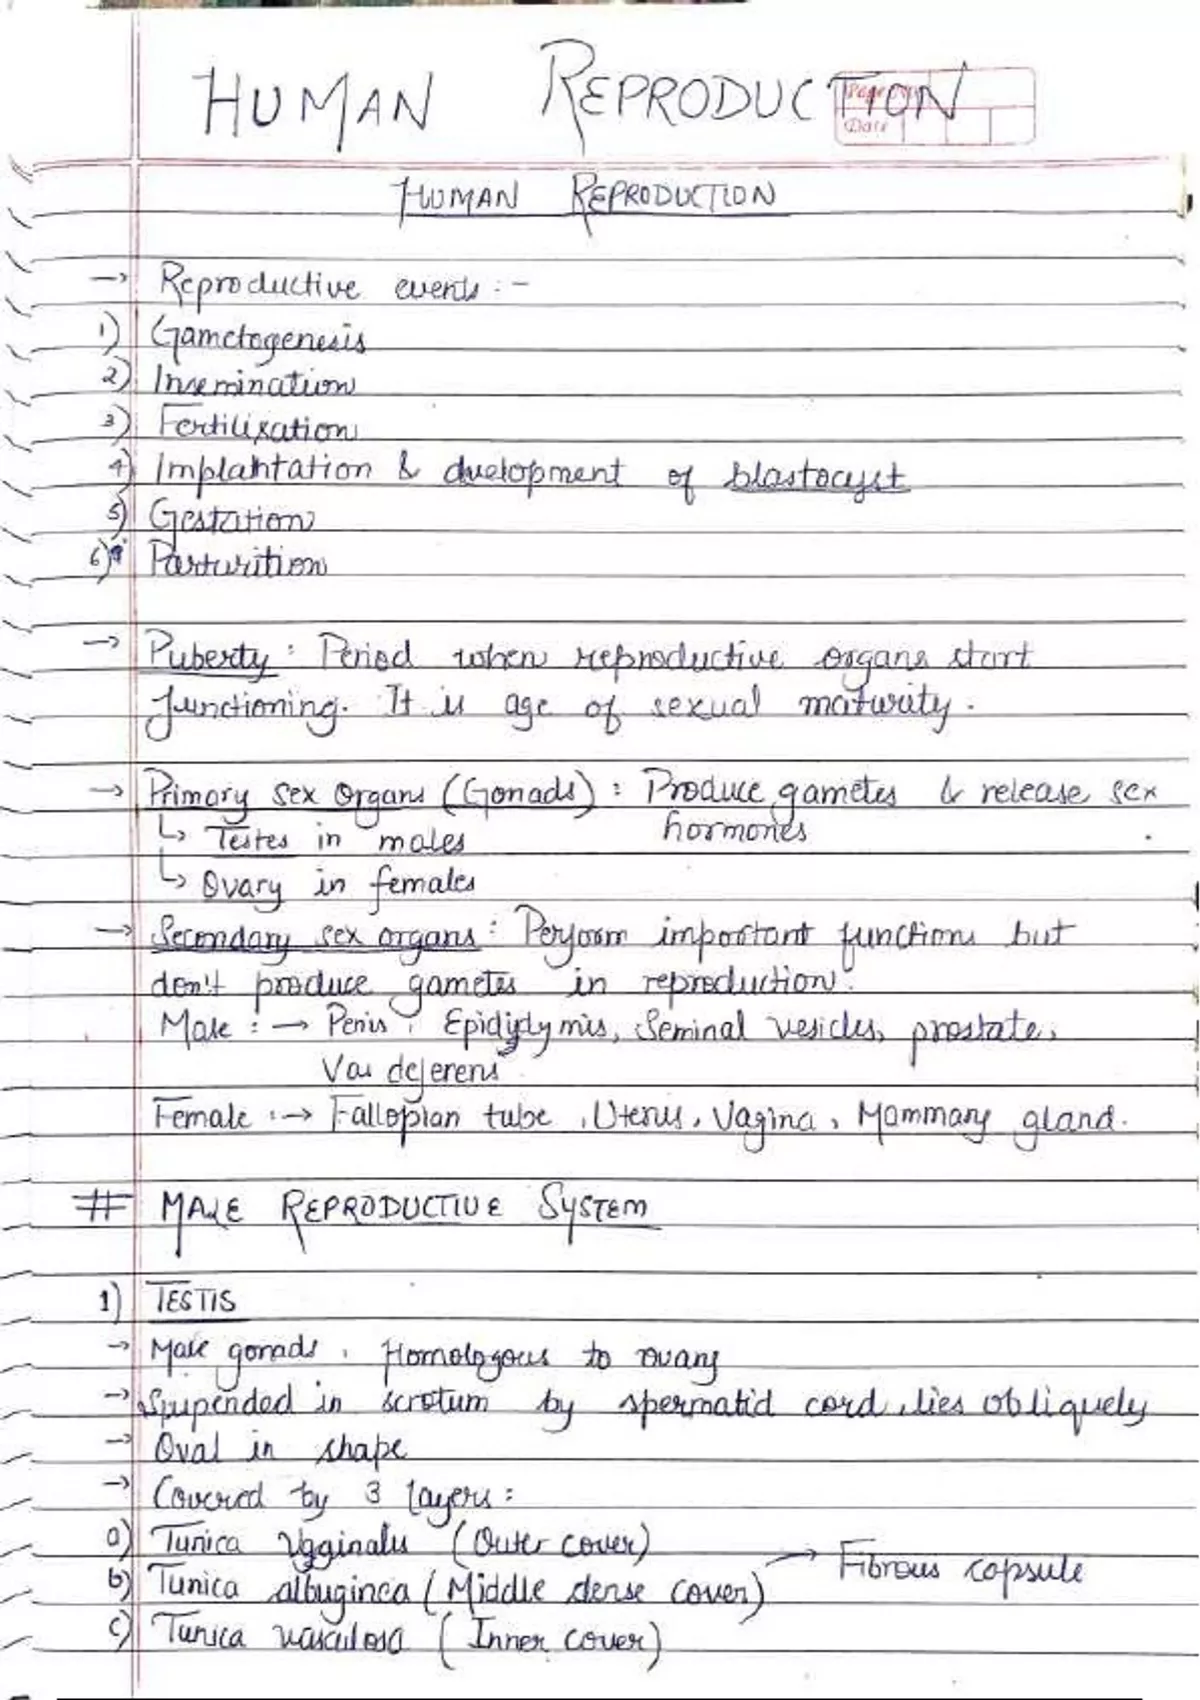 HUMAN REPRODUCTION
Page No.
Date
HUMAN REPRODUCTION
→ Reproductive events :-
1) Gametogenesis
2) Insemination
3) Fertilisation
4) Implantation & development of blastocyst
5) Gestation
6) Parturition
→ Puberty : Period when reproductive organs start
functioning. It is age of sexual maturity.
→ Primary sex organs (Gonads) : Produce gametes & release sex
hormones
↳ Testes in males
↳ Ovary in females
→ Secondary sex organs : Perform important functions but
don't produce gametes in reproduction.
Male : → Penis, Epididymis, Seminal vesicles, prostate,
Vas deferens
Female : → Fallopian tube, Uterus, Vagina, Mammary gland.
# MALE REPRODUCTIVE SYSTEM
1) TESTIS
→ Male gonads, Homologous to ovary
→ Suspended in scrotum by spermatid cord, lies obliquely
→ Oval in shape
→ Covered by 3 layers :
a) Tunica Vaginalis (Outer cover)
b) Tunica albuginea (Middle dense cover) → Fibrous capsule
c) Tunica vasculosa (Inner cover)